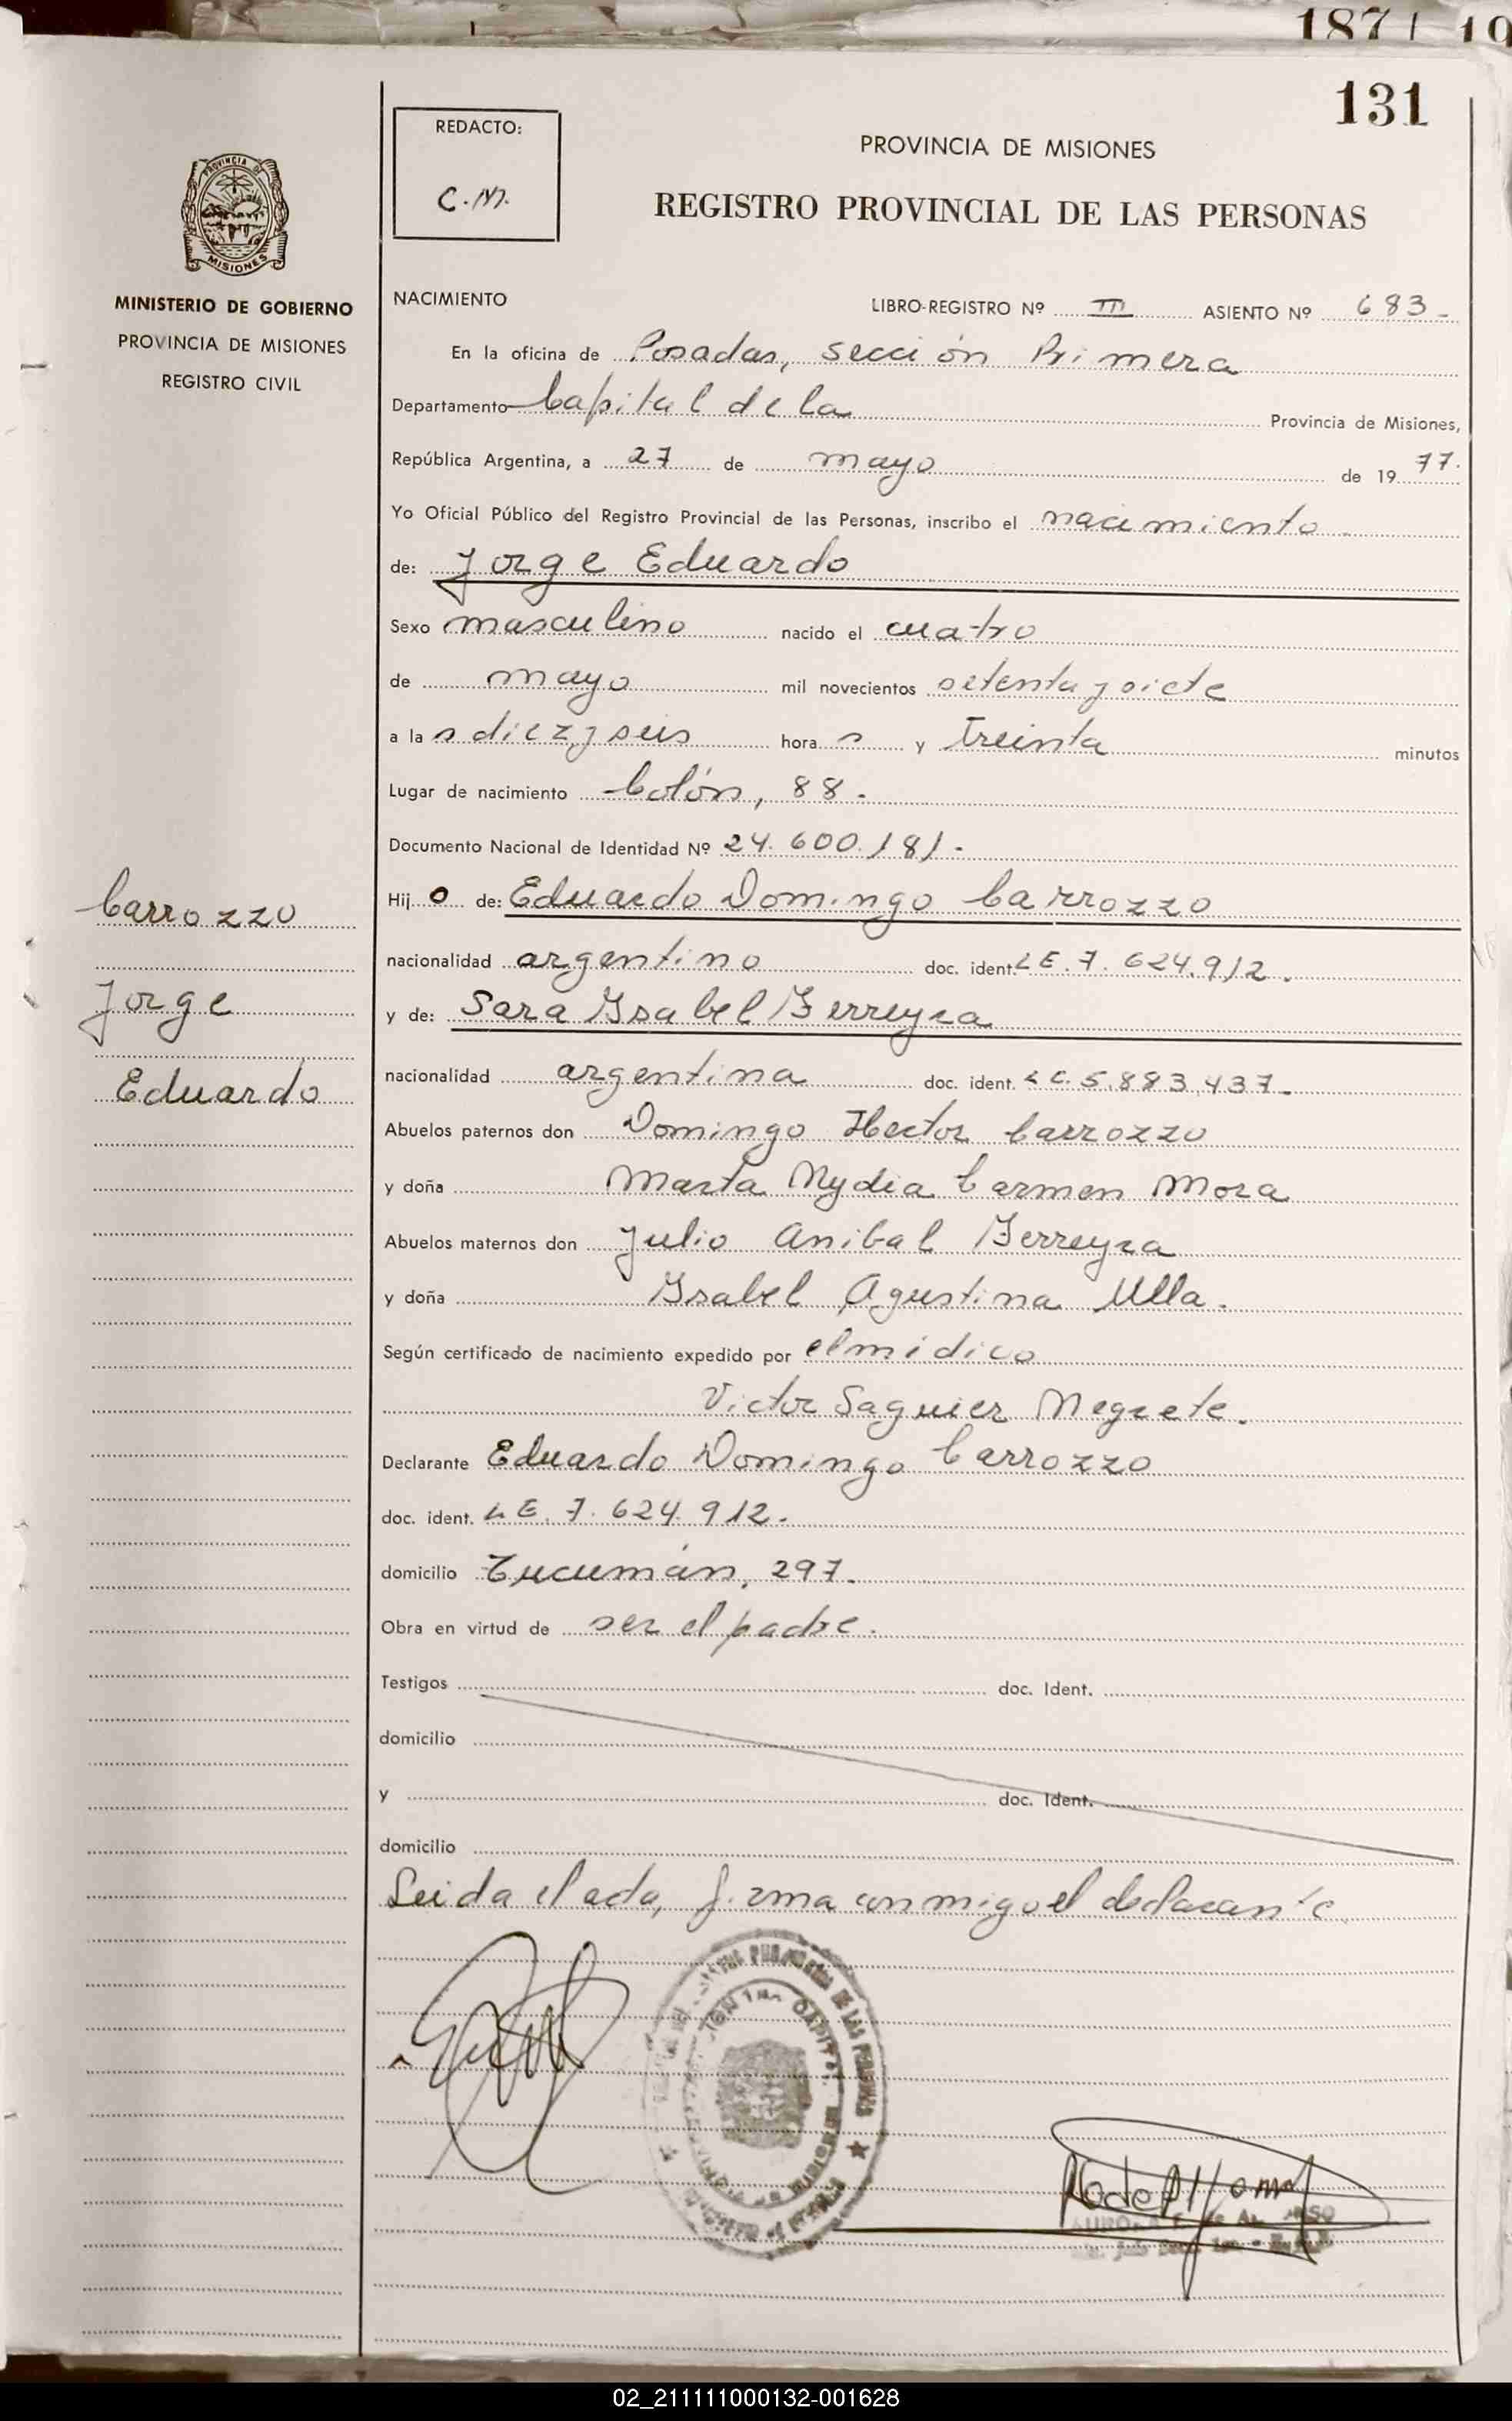 187 19
131
REDACTO:
C.M.
PROVINCIA DE MISIONES
REGISTRO PROVINCIAL DE LAS PERSONAS
PROVINCIA DE
MISIONES
MINISTERIO DE GOBIERNO
PROVINCIA DE MISIONES
REGISTRO CIVIL
NACIMIENTO LIBRO-REGISTRO Nº III ASIENTO Nº 683-
En la oficina de Posadas, sección Primera
Departamento Capital de la Provincia de Misiones,
República Argentina, a 27 de mayo de 19 77.
Yo Oficial Público del Registro Provincial de las Personas, inscribo el nacimiento
de: Jorge Eduardo
Sexo masculino nacido el cuatro
de mayo mil novecientos setenta y siete
a la s diez y seis hora s y treinta minutos
Lugar de nacimiento Colón, 88.
Documento Nacional de Identidad Nº 24.600.181.
Hij o de: Eduardo Domingo Carrozzo
nacionalidad argentino doc. ident. LE. 7.624.912.
y de: Sara Ysabel Ferreyra
nacionalidad argentina doc. ident. LC. 5.883.437.
Abuelos paternos don Domingo Hector Carrozzo
y doña Marta Nydia Carmen Mora
Abuelos maternos don Julio Anibal Ferreyra
y doña Ysabel Agustina Ulla.
Según certificado de nacimiento expedido por el médico
Victor Saguier Negrete.
Declarante Eduardo Domingo Carrozzo
doc. ident. LE. 7.624.912.
domicilio Tucumán, 297.
Obra en virtud de ser el padre.
Testigos doc. Ident.
domicilio
y doc. Ident.
domicilio
Leida el acta, firma conmigo el declarante.
Carrozzo
Jorge
Eduardo
02_211111000132-001628